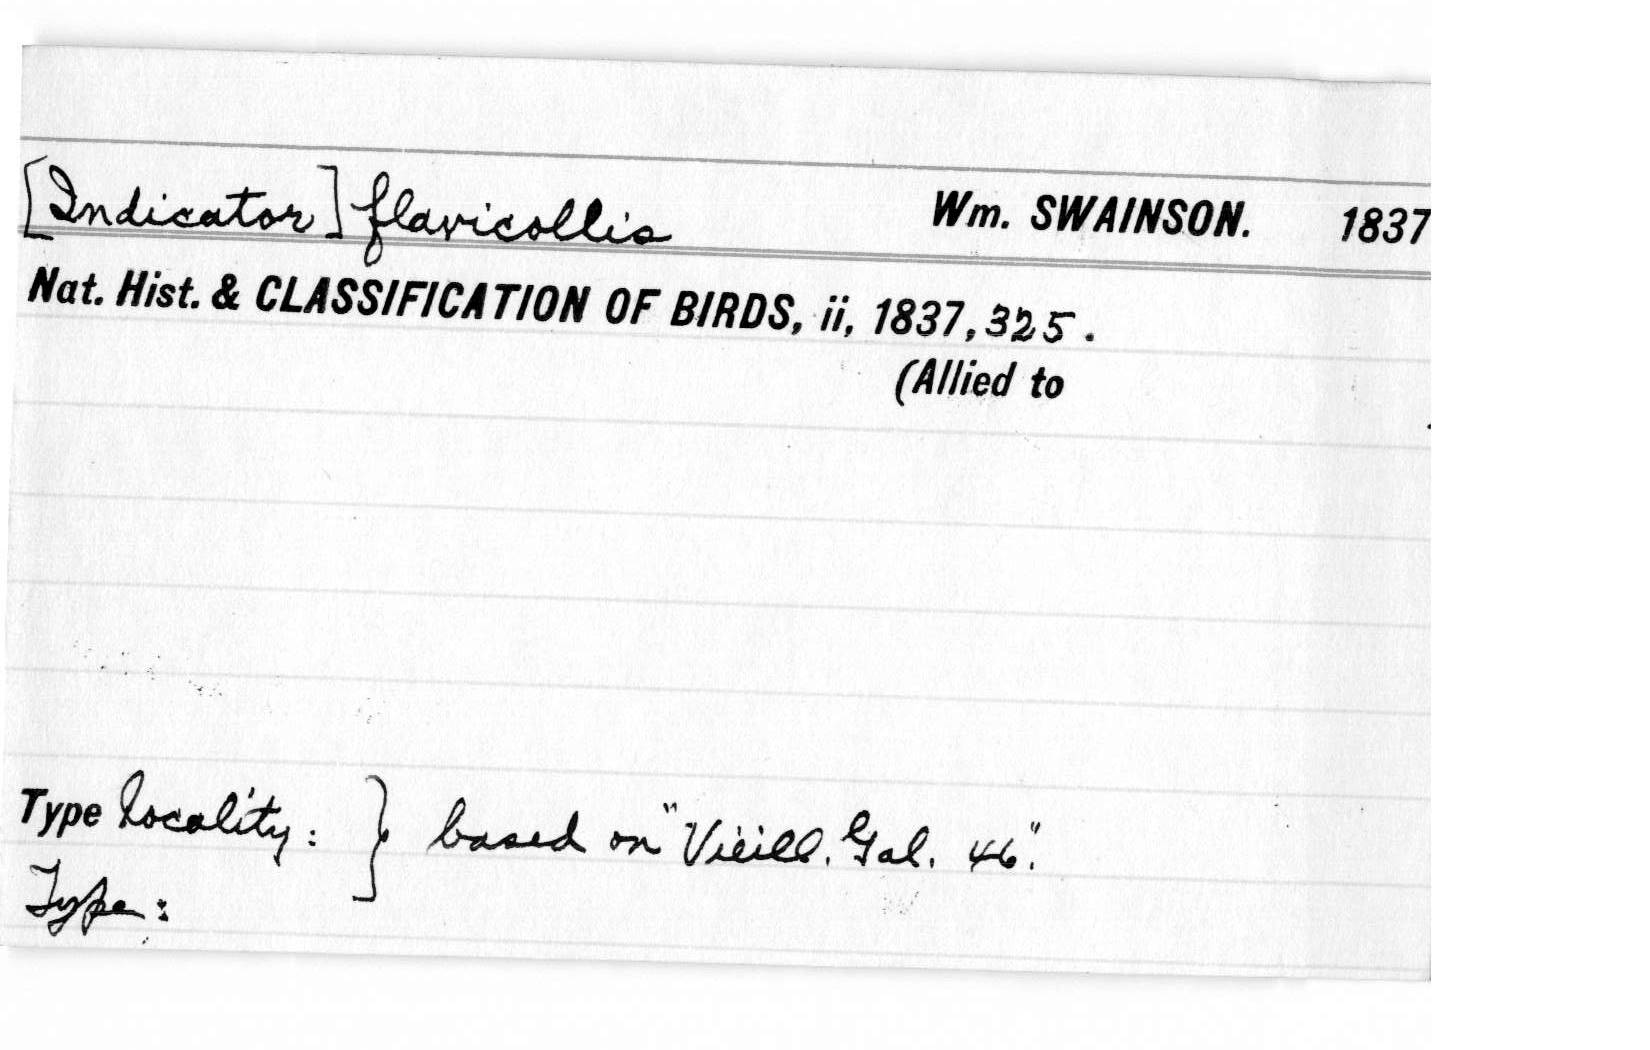 [Indicator] flavicollis Wm. SWAINSON. 1837
Nat. Hist. & CLASSIFICATION OF BIRDS, ii, 1837, 325.
(Allied to
Type locality: } based on "Vieill. Gal. 46".
Type: